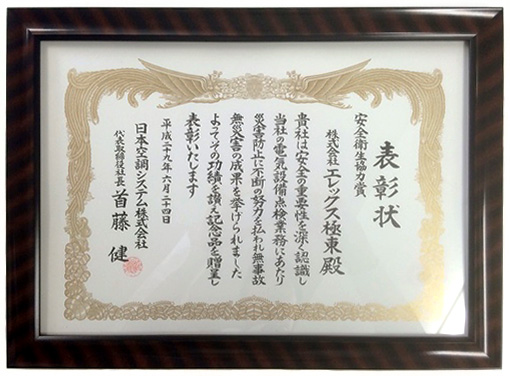 表彰状
安全衛生協力賞
株式会社 エレックス極東 殿
貴社は安全の重要性を深く認識し
当社の電気設備点検業務にあたり
災害防止に不断の努力を払われ無事故
無災害の成果を挙げられました
よってその功績を讃え記念品を贈呈し
表彰いたします
平成二十九年六月二十四日
日本空調システム株式会社
代表取締役社長 首藤 健